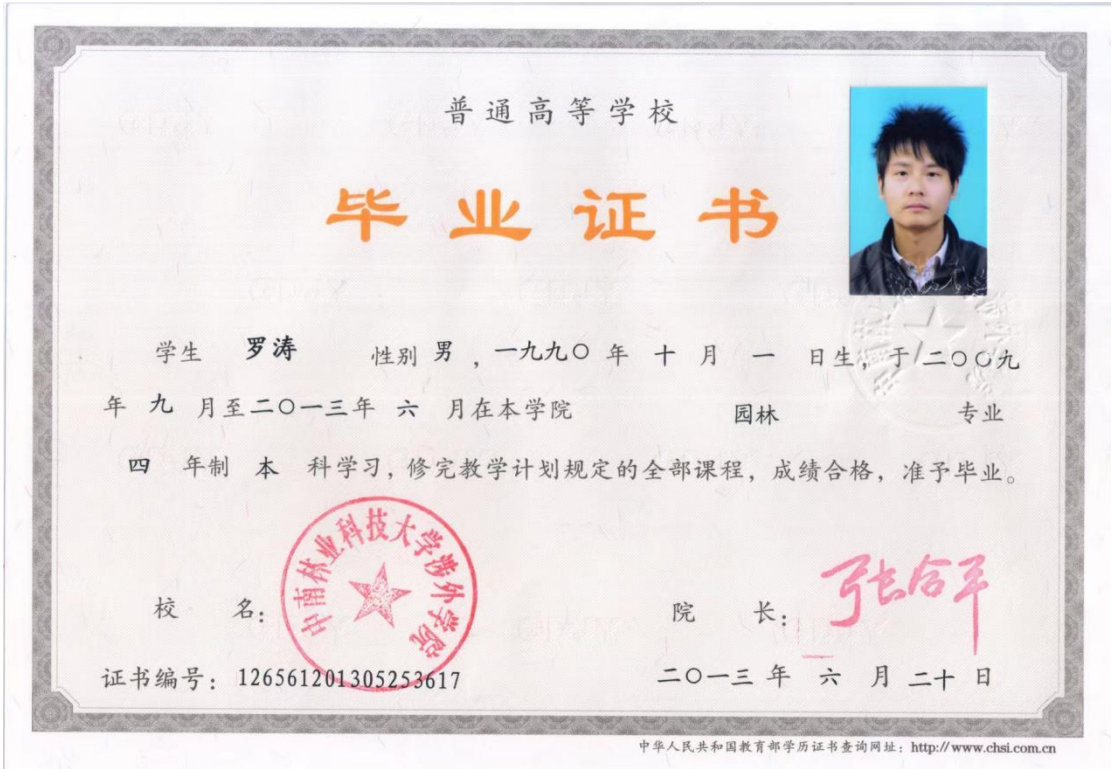 普通高等学校
毕业证书
学生 罗涛 性别 男 ，一九九〇 年 十 月 一 日生，于 二〇〇九
年 九 月至二〇一三年 六 月在本学院 园林 专业
四 年制 本 科学习，修完教学计划规定的全部课程，成绩合格，准予毕业。
中南林业科技大学涉外学院
校 名：
院 长： 张合平
证书编号：126561201305253617
二〇一三 年 六 月 二十 日
中华人民共和国教育部学历证书查询网址：http://www.chsi.com.cn